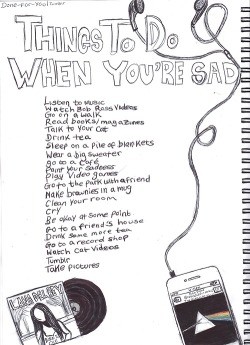 Done-For-You|Tumblr
THINGS TO DO
WHEN YOU'RE SAD
Listen to music
Watch Bob Ross Videos
Go on a walk
Read books/magazines
Talk to your cat
Drink tea
Sleep on a pile of blankets
Wear a big sweater
Go to a café
Paint your sadness
Play video games
Go to the park with a friend
Make brownies in a mug
Clean your room
Cry
Be okay at some point
Go to a friend's house
Drink some more tea
Go to a record shop
Watch cat videos
Tumblr
Take pictures
LANA DEL REY